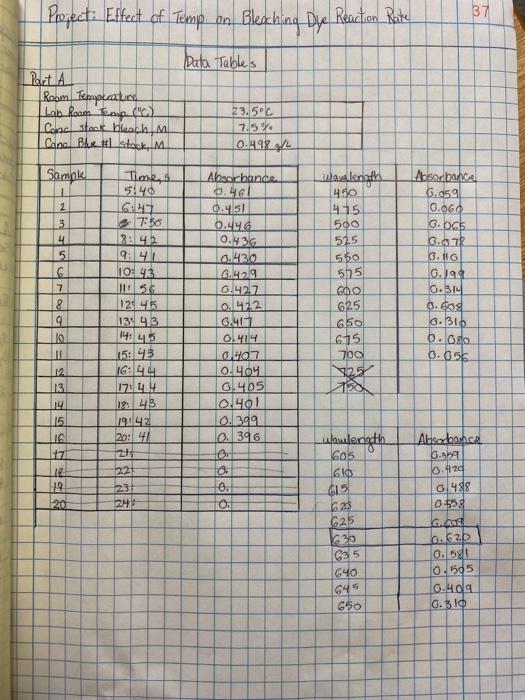 Project: Effect of Temp on Bleaching Dye Reaction Rate 37
Data Tables
Part A
Room Temperature
Lab Room Temp. (°C) 23.5°C
Conc stock bleach, M 7.5%
Conc. Blue #1 stock, M 0.498 g/L
Sample Time, s Absorbance
1 5:40 0.461
2 6:47 0.451
3 7:50 0.446
4 8:42 0.436
5 9:41 0.430
6 10:43 0.429
7 11:56 0.427
8 12:45 0.422
9 13:43 0.417
10 14:45 0.414
11 15:43 0.407
12 16:44 0.404
13 17:44 0.405
14 18:43 0.401
15 19:42 0.399
16 20:41 0.396
17 21: 0.
18 22: 0.
19 23: 0.
20 24: 0.
wavelength Absorbance
450 0.059
475 0.060
500 0.065
525 0.078
550 0.110
575 0.199
600 0.314
625 0.608
650 0.310
675 0.080
700 0.056
725
750
wavelength Absorbance
605 0.359
610 0.420
615 0.488
620 0.558
625 0.609
630 0.620
635 0.581
640 0.505
645 0.409
650 0.310